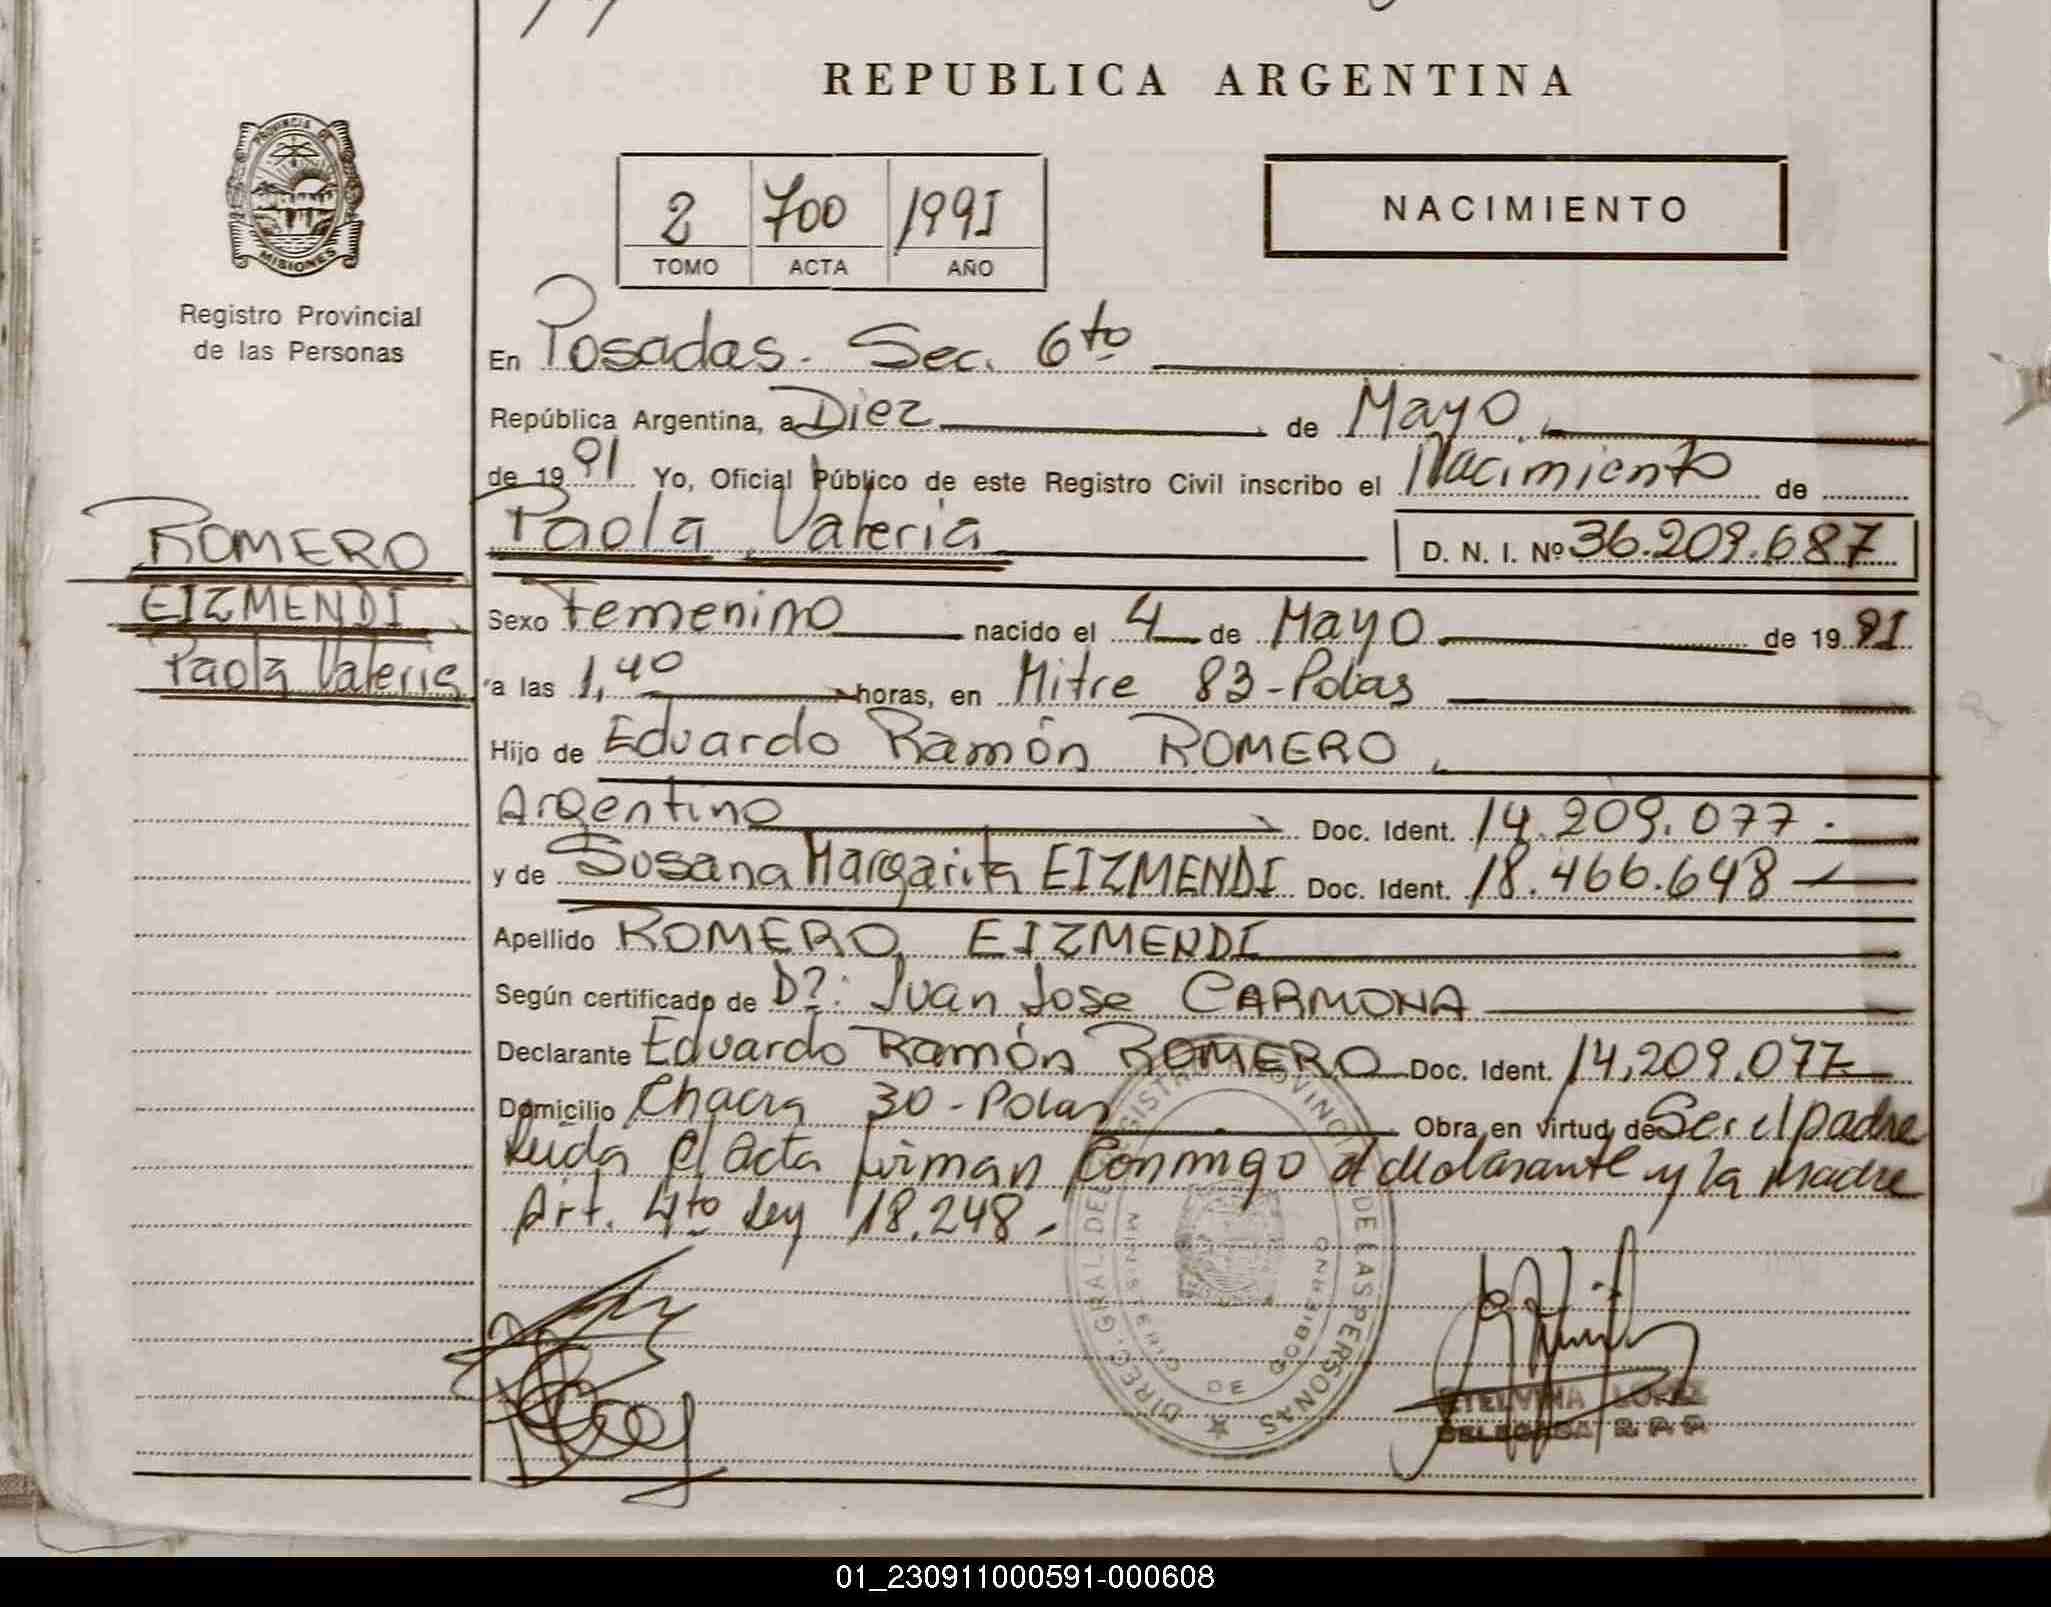 REPUBLICA ARGENTINA
PROVINCIA DE
MISIONES
Registro Provincial
de las Personas
2 700 1991
TOMO ACTA AÑO
NACIMIENTO
En Posadas - Sec. 6to
República Argentina, a Diez de Mayo
de 1991 Yo, Oficial Público de este Registro Civil inscribo el Nacimiento de
Paola Valeria D. N. I. Nº 36.209.687
ROMERO
EIZMENDI
Paola Valeria
Sexo Femenino nacido el 4 de Mayo de 1991
a las 1,40 horas, en Mitre 83 - Pdas
Hijo de Eduardo Ramón ROMERO
Argentino Doc. Ident. 14.209.077.-
y de Susana Margarita EIZMENDI Doc. Ident. 18.466.648
Apellido ROMERO EIZMENDI
Según certificado de Dr: Juan Jose CARMONA
Declarante Eduardo Ramón ROMERO Doc. Ident. 14,209.077
Domicilio Chacra 30 - Pdas Obra en virtud de Ser el padre
Leida el acta firman Conmigo el declarante y la Madre
Art. 4to Ley 18.248.-
DIREC. GRAL. DEL REGISTRO PROVINCIAL DE LAS PERSONAS
MINISTERIO DE GOBIERNO
ETELVINA LOPEZ
DELEGADA R. P. P.
01_230911000591-000608